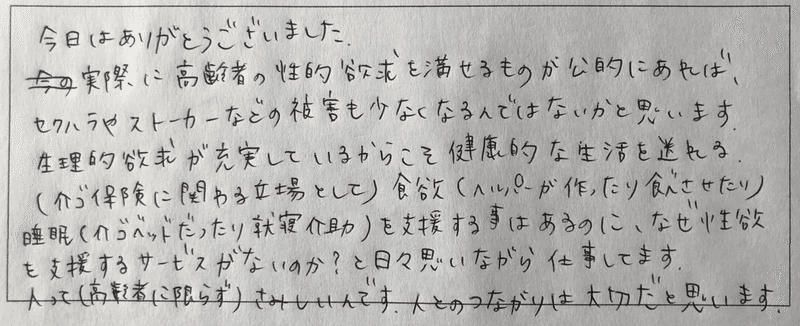 今日はありがとうございました.
今の実際に高齢者の性的欲求を満せるものが公的にあれば、
セクハラやストーカーなどの被害も少なくなるんではないかと思います.
生理的欲求が充実しているからこそ健康的な生活を送れる.
(介ゴ保険に関わる立場として)食欲(ヘルパーが作ったり食べさせたり)
睡眠(介ゴベッドだったり就寝介助)を支援する事はあるのに、なぜ性欲
を支援するサービスがないのか?と日々思いながら仕事してます.
人って(高齢者に限らず)さみしいんです.人とのつながりは大切だと思います.